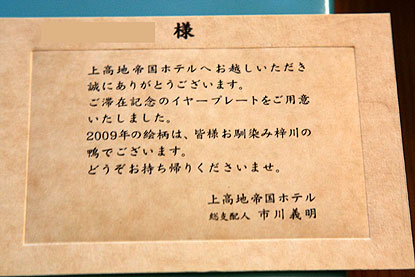 様
上高地帝国ホテルへお越しいただき
誠にありがとうございます。
ご滞在記念のイヤープレートをご用意
いたしました。
2009年の絵柄は、皆様お馴染み梓川の
鴨でございます。
どうぞお持ち帰りくださいませ。
上高地帝国ホテル
総支配人 市川義明